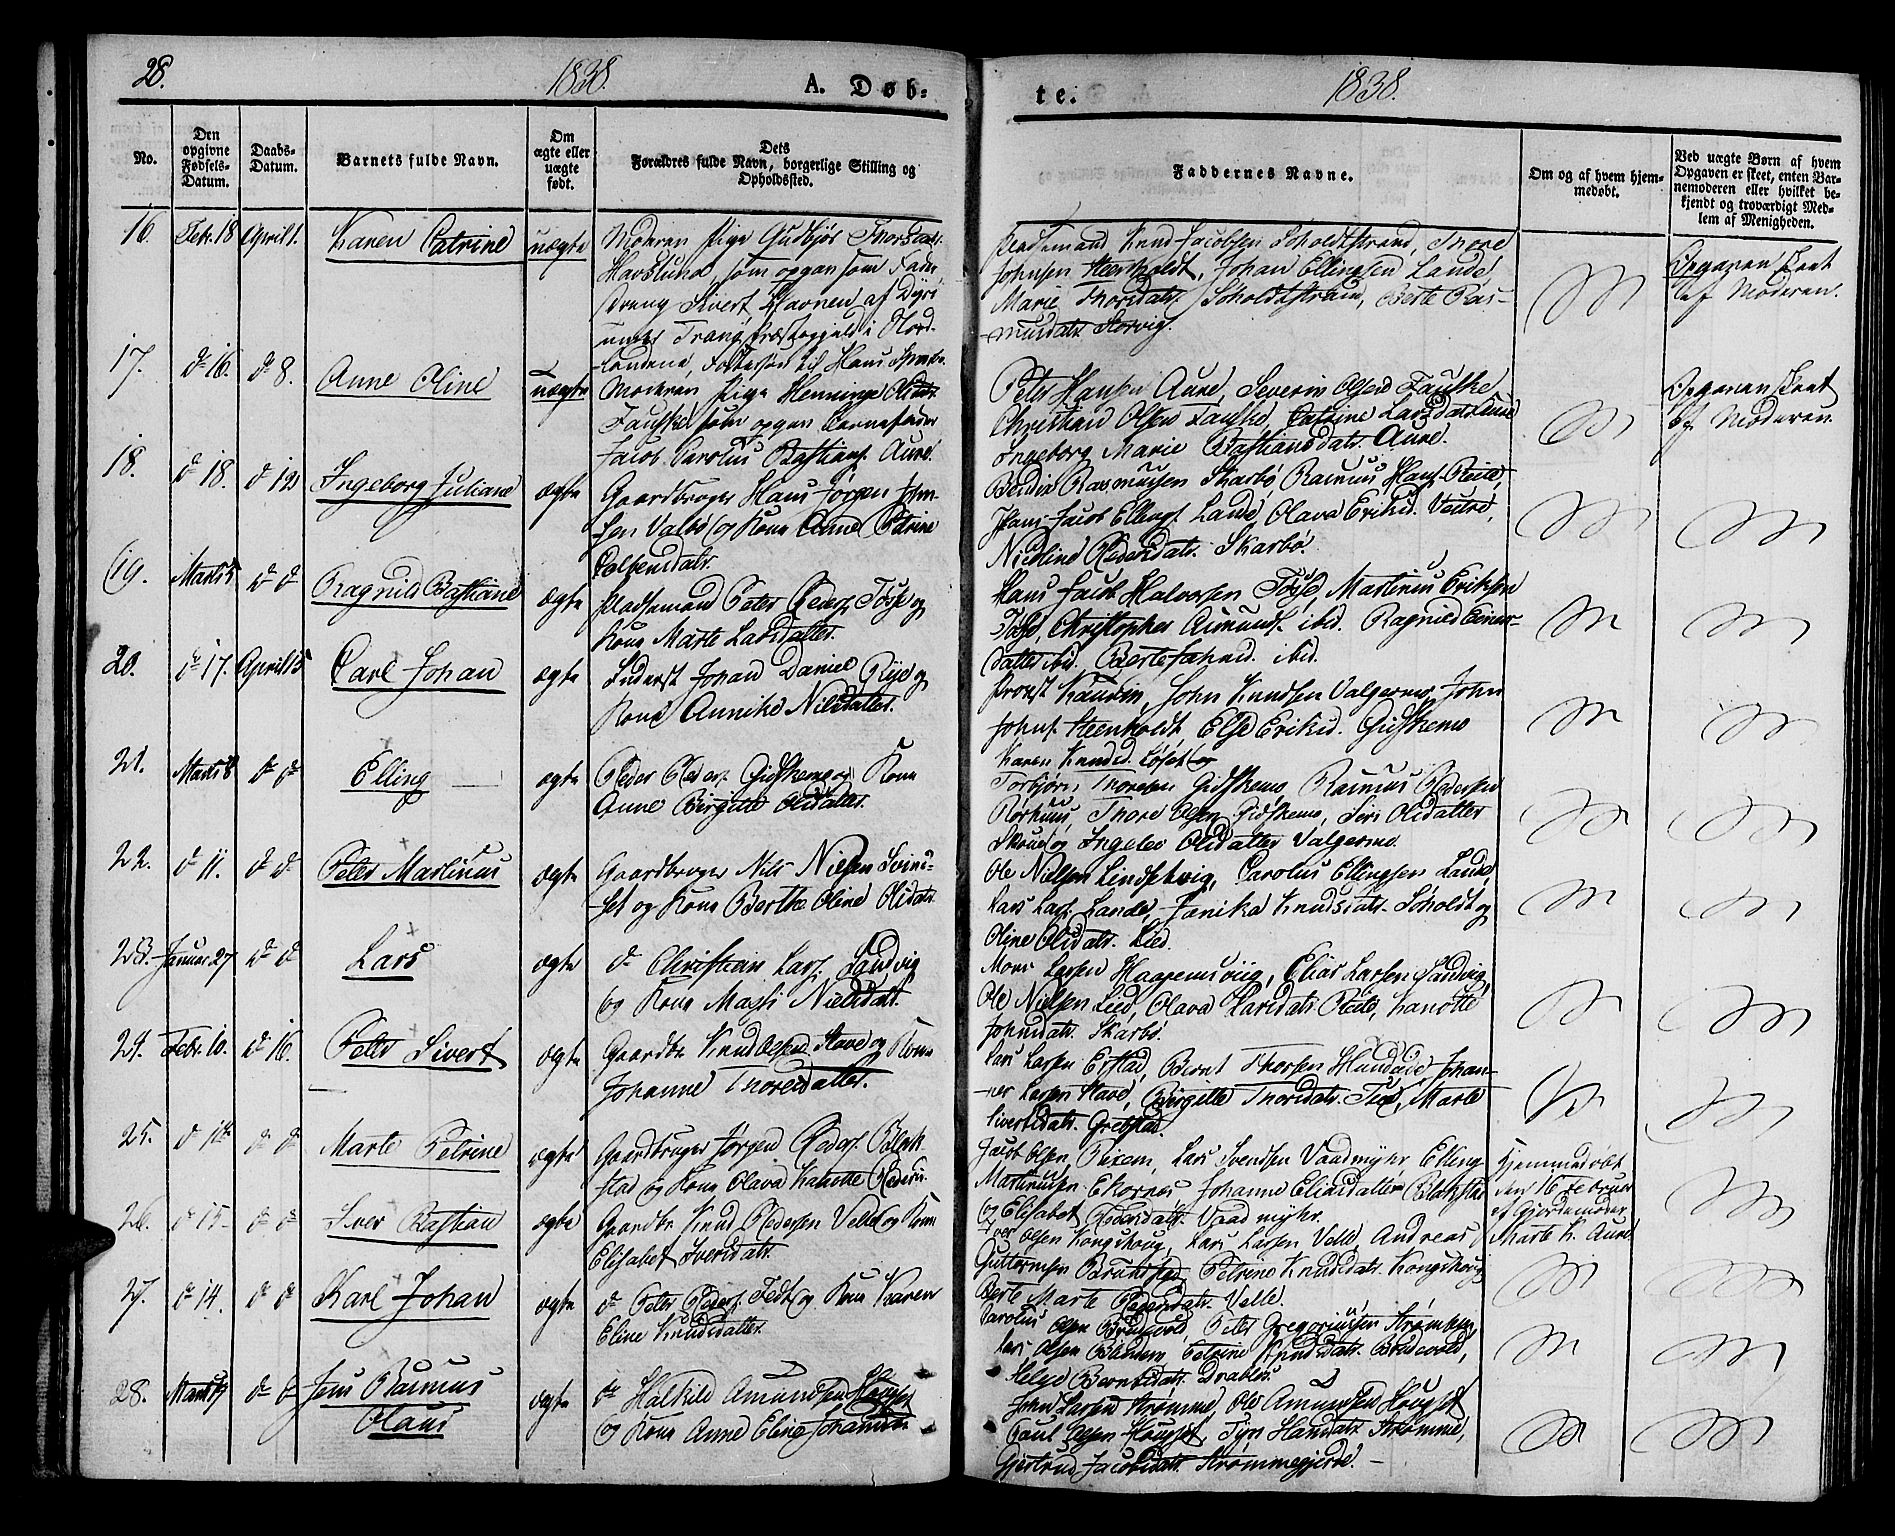 28.
1838.
A. Døb=
te.
1838.
No.
Den opgivne Fødsels-Datum.
Daabs-Datum.
Barnets fulde Navn.
Om ægte eller uægte født.
Dets Forældres fulde Navn, borgerlige Stilling og Opholdssted.
Faddernes Navne.
Om og af hvem hjemmedøbt.
Ved uægte Børn af hvem Opgaven er skeet, enten Barnemoderen eller hvilket bekjendt og troværdigt Medlem af Menigheden.
16. Febr. 18 April 1. Karen Catrine uægte
Moderen Pige
Havslund, som opgav som Fader
Sivert af
Præstegjeld i Nord-
landene, til Hans
Pladsemand Knud Jacobsen Søholdtstrand, Thore
Johnsen Steenholdt, Johan Ellingsen Lande
Marie Thoresdatr. Søholdtstrand, Berte Ras-
musdatr. Storvig.
Opgaven skeet
af Moderen.
17. d 16. d 8. Anne Oline uægte
Moderen Pige Henninge Olsdr.
Fauske som opgav Barnefader
Jacob Carolus Bastians. Aure.
Peter Hansen Aure, Severin Olsen Fauske
Christian Olsen Fauske, Catrine Larsdatr. Aure
Ingeborg Marie Bastiansdatr. Aure.
Opgaven skeet
af Moderen.
18. d 18. d d Ingeborg Juliane ægte
Gaardbruger Hans Jørgen John-
sen Valbø og Kone Anne Petrine
Rasmussen Skarbø Rasmus Hans. Reite,
Hans Jacob Ellings. Lande, Olava Eriksd. Vestre,
Nicoline Pedersdatr. Skarbø.
19. Marts 5 d d Ragnild Bastiane ægte
Pladsemand Peter Peders. Tøsse og
Kone Marte Larsdatter.
Hans Jacob Halvorsen Tøsse, Martinus Eriksen
Tøsse, Christopher Asmunds. ibid. Ragnild Einar-
datter ibid. Berte Johnsd. ibid.
20. d 17. April 15 Carl Johan ægte
Inderst Johan Daniel Rye og
Kone Annike Nilsdatter.
Provst, John Knudsen Valgermo, John
Johns. Steenholdt Else Eriksd. Gidskemo
Karen Knudsd. Løset og
21. Marts 8 d d Elling ægte
Peder Peders. Gidskemo og Kone
Anne Birgitte Olsdatter.
Torbjørn Thoresen Gidskemo Rasmus Pedersen
Rørhuus, Thore Olsen Gidskemo, Siri Olsdatter
Skoue og Ingelev Olsdatter Valgermo.
22. d 11. d d Peter Martinus ægte
Gaardbruger Nils Nielsen Svine-
set og Kone Berthe Oline Olsdatr.
Ole Nielsen Lindsetvig, Carolus Ellingsen Lande,
Lars Lars. Lande, Jænika Knudsdatr. Søholdt og
Oline Olsdatr. Lied.
23. Januar 27 d d Lars ægte
d Christian Lars. Sandvig
og Kone Massi Nielsdatr.
Mons Larsen, Elias Larsen Sandvig,
Ole Nielsen Lied, Olava Larsdatr. Reite, Hanotte
Johnsdatr. Skarbø.
24. Febr. 10. d 16. Peter Sivert ægte
Gaardbr. Knud Olsen Stave og Kone
Johanne Thoresdatter.
Lars Larsen Erstad, Bernt Thorsen Hundeide, Johan-
nes Larsen Stave, Birgitte Thoresdatr., Marte
Sivertsdatr. Grebstad.
25. d 14 d d Marte Petrine ægte
Gaardbruger Jørgen Peders. Blak-
stad og Kone Olava Hanotte Pedersd.
Jacob Olsen Rixem, Lars Svendsen Vaadmyhr, Elling
Martinusen Ekornes, Johanne Eliasdatter Blakstad
og Elisabet Pedersdatr. Vaadmyhr.
Hjemmedøbt
den 16 Februar
af Gjordemoder
Marte K. Aure.
26. d 15 d d Iver Bastian ægte
Gaardbr. Knud Pedersen Velle og Kone
Elisabet Iversdatr.
Iver Olsen Kongshoug, Lars Larsen Velle, Andreas
Guttormsen Brunstad, Petrine Knudsdatr. Kongshoug
Berte Marte Pedersdatr. Velle.
27. d 14. d d Karl Johan ægte
d Peter Peders. Fedt og Kone Karen
Eline Knudsdatter.
Carolus Olsen Brudevold, Peter Gregoriussen Strømmen
Lars Olsen, Petrine Knudsdatr. Brudevold,
Helge Berntsdatr. Drabløs.
28. Marts d d Jens Rasmus
Olaus ægte
d Halkild Amundsen Hougset
og Kone Anne Eline Johannesd.
John Larsen Strømme, Ole Amundsen Hougset
Poul Olsen Hougset, Hansdatr. Strømme,
Gjertrud Jacobsdatr. Strømmegjerde.